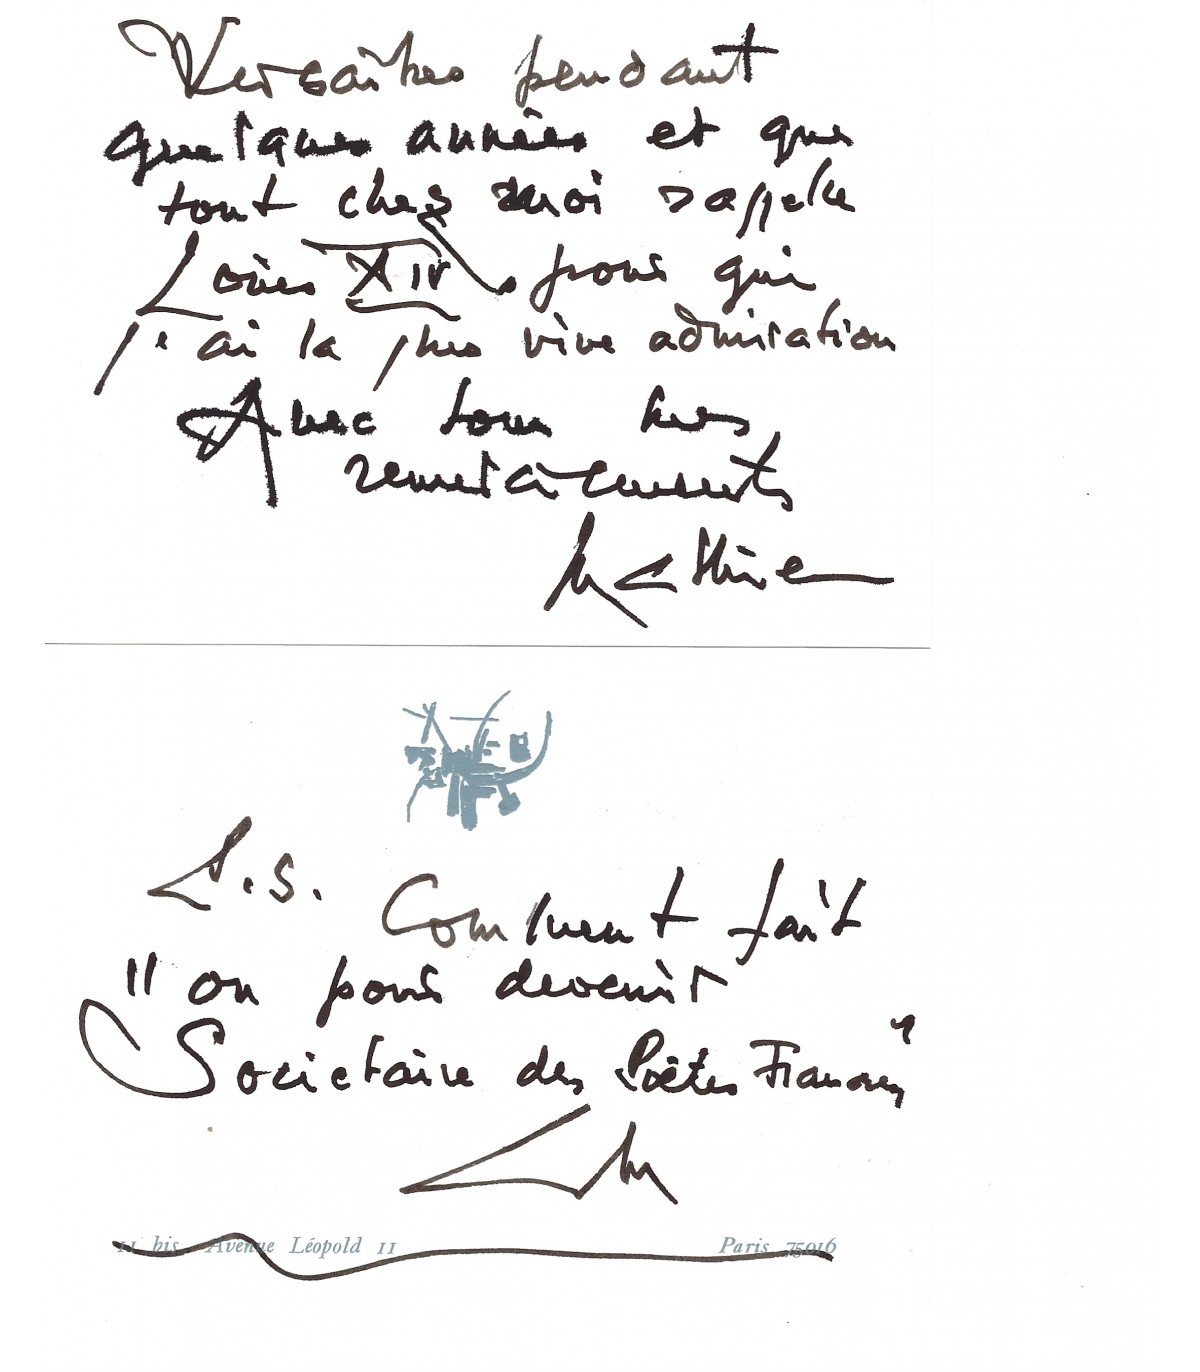 Versailles pendant
quelques années et que
tout chez moi rappelle
Louis XIV pour qui
j'ai la plus vive admiration
Avec tous mes
remerciements
Mathieu
P.S. Comment fait
l'on pour devenir
Societaire des Poètes Français
11 bis Avenue Léopold II Paris 75016